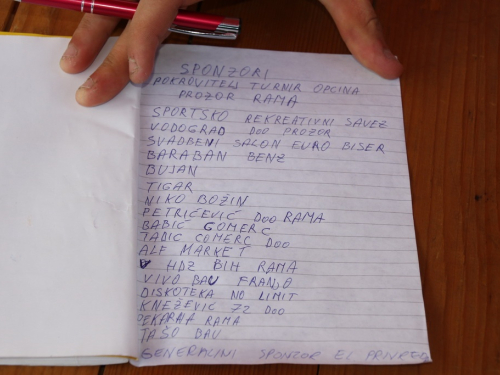 SPONZORI
POKROVITELJ TURNIR OPCINA
PROZOR RAMA
SPORTSKO REKREATIVNI SAVEZ
VODOGRAD DOO PROZOR
SVADBENI SALON EURO BISER
BARABAN BENZ
BUJAN
TIGAR
NIKO BOŽIN
PETRIČEVIĆ DOO RAMA
BABIĆ GOMERC
TADIĆ COMERC DOO
ALF MARKET
HDZ BIH RAMA
VIVO BAU FRANJO
DISKOTEKA NO LIMIT
KNEŽEVIĆ 72 DOO
PEKARNA RAMA
TAŠO BAU
GENERALNI SPONZOR EL PRIVREDA